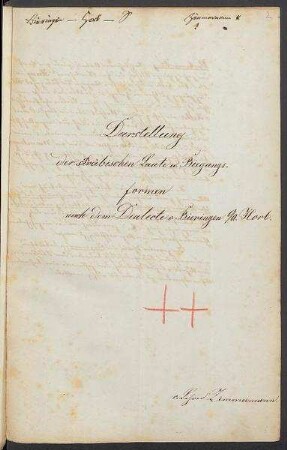 Bieringen — Horb — S
Zimmermann K
Darstellung
der schwäbischen Laute u. Biegungs-
formen
nach dem Dialecte v. Bieringen OA. Horb.
v. Zimmermann